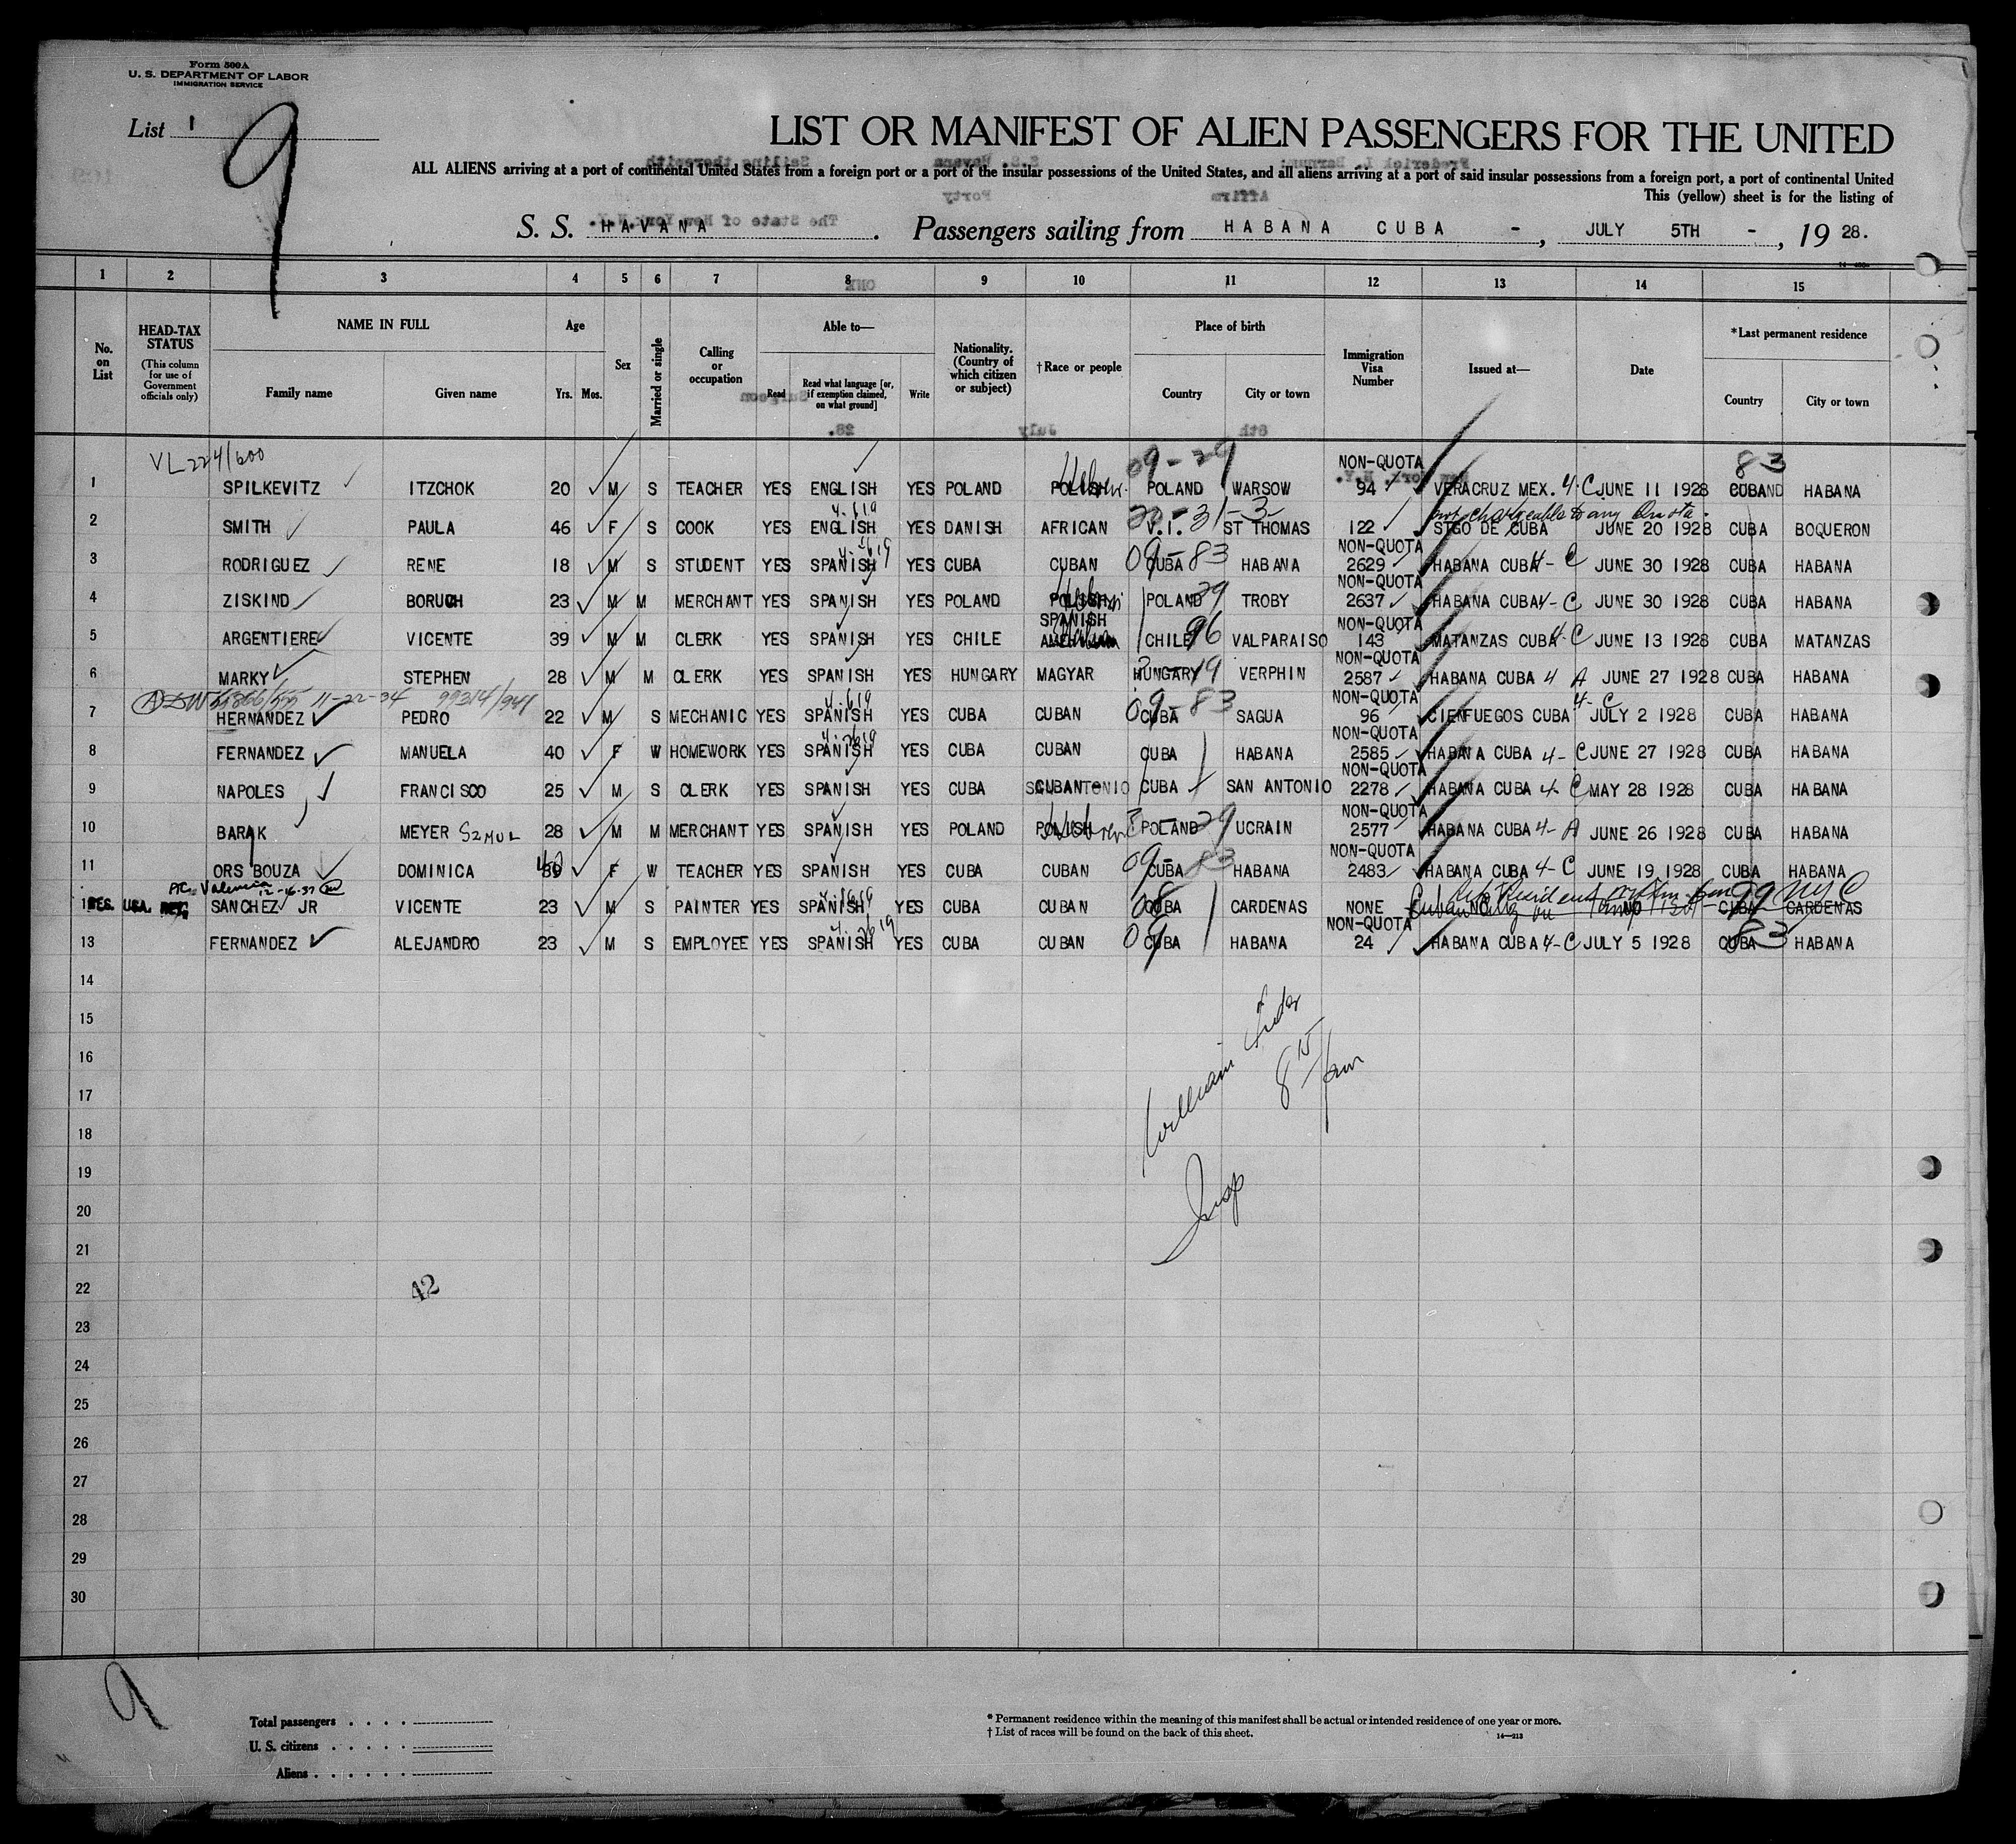 Form 500A
U. S. DEPARTMENT OF LABOR
IMMIGRATION SERVICE
List 1
9
LIST OR MANIFEST OF ALIEN PASSENGERS FOR THE UNITED
ALL ALIENS arriving at a port of continental United States from a foreign port or a port of the insular possessions of the United States, and all aliens arriving at a port of said insular possessions from a foreign port, a port of continental United
This (yellow) sheet is for the listing of
S. S. HAVANA. Passengers sailing from HABANA CUBA -, JULY 5TH -, 19 28.
1 2 3 4 5 6 7 8 9 10 11 12 13 14 15
No. on List
HEAD-TAX STATUS
(This column for use of Government officials only)
NAME IN FULL
Family name Given name
Age
Yrs. Mos.
Sex
Married or single
Calling or occupation
Able to—
Read Read what language [or, if exemption claimed, on what ground] Write
Nationality. (Country of which citizen or subject)
†Race or people
Place of birth
Country City or town
Immigration Visa Number
Issued at—
Date
*Last permanent residence
Country City or town
VL 224/600 09-29 NON-QUOTA 83
1 SPILKEVITZ ITZCHOK 20 M S TEACHER YES ENGLISH YES POLAND POLISH POLAND WARSOW 94 VERACRUZ MEX. 4-C JUNE 11 1928 CUBAND HABANA
not chargeable to any Quota.
2 SMITH PAULA 46 F S COOK YES ENGLISH YES DANISH AFRICAN V.I. ST THOMAS 122 STGO DE CUBA JUNE 20 1928 CUBA BOQUERON
NON-QUOTA
3 RODRIGUEZ RENE 18 M S STUDENT YES SPANISH YES CUBA CUBAN 09-83 CUBA HABANA 2629 HABANA CUBA 4-C JUNE 30 1928 CUBA HABANA
NON-QUOTA
4 ZISKIND BORUCH 23 M M MERCHANT YES SPANISH YES POLAND POLISH POLAND 29 TROBY 2637 HABANA CUBA 4-C JUNE 30 1928 CUBA HABANA
SPANISH NON-QUOTA
5 ARGENTIERE VICENTE 39 M M CLERK YES SPANISH YES CHILE CHILE 96 VALPARAISO 143 MATANZAS CUBA 4-C JUNE 13 1928 CUBA MATANZAS
NON-QUOTA
6 MARKY STEPHEN 28 M M CLERK YES SPANISH YES HUNGARY MAGYAR HUNGARY 19 VERPHIN 2587 HABANA CUBA 4 A JUNE 27 1928 CUBA HABANA
11-22-34 99314/941 NON-QUOTA
7 HERNANDEZ PEDRO 22 M S MECHANIC YES SPANISH YES CUBA CUBAN 09-83 CUBA SAGUA 96 CIENFUEGOS CUBA 4-C JULY 2 1928 CUBA HABANA
NON-QUOTA
8 FERNANDEZ MANUELA 40 F W HOMEWORK YES SPANISH YES CUBA CUBAN CUBA HABANA 2585 HABANA CUBA 4-C JUNE 27 1928 CUBA HABANA
NON-QUOTA
9 NAPOLES FRANCISCO 25 M S CLERK YES SPANISH YES CUBA CUBAN CUBA SAN ANTONIO 2278 HABANA CUBA 4-C MAY 28 1928 CUBA HABANA
NON-QUOTA
10 BARAK MEYER SZMUL 28 M M MERCHANT YES SPANISH YES POLAND POLISH POLAND 29 UCRAIN 2577 HABANA CUBA 4-A JUNE 26 1928 CUBA HABANA
NON-QUOTA
11 ORS BOUZA DOMINICA 40 F W TEACHER YES SPANISH YES CUBA CUBAN 09-83 CUBA HABANA 2483 HABANA CUBA 4-C JUNE 19 1928 CUBA HABANA
Valencia 12-16-37
RES. USA. RET.
12 SANCHEZ JR VICENTE 23 M S PAINTER YES SPANISH YES CUBA CUBAN CUBA CARDENAS NONE NO NO CUBA CARDENAS 99 NYC
NON-QUOTA
13 FERNANDEZ ALEJANDRO 23 M S EMPLOYEE YES SPANISH YES CUBA CUBAN 09 CUBA HABANA 24 HABANA CUBA 4-C JULY 5 1928 CUBA 83 HABANA
14
15
16
17
18
19
20
21
22
23
24
25
26
27
28
29
30
William
8 15
Insp
42
9
Total passengers
U. S. citizens
Aliens
* Permanent residence within the meaning of this manifest shall be actual or intended residence of one year or more.
† List of races will be found on the back of this sheet.
14—213